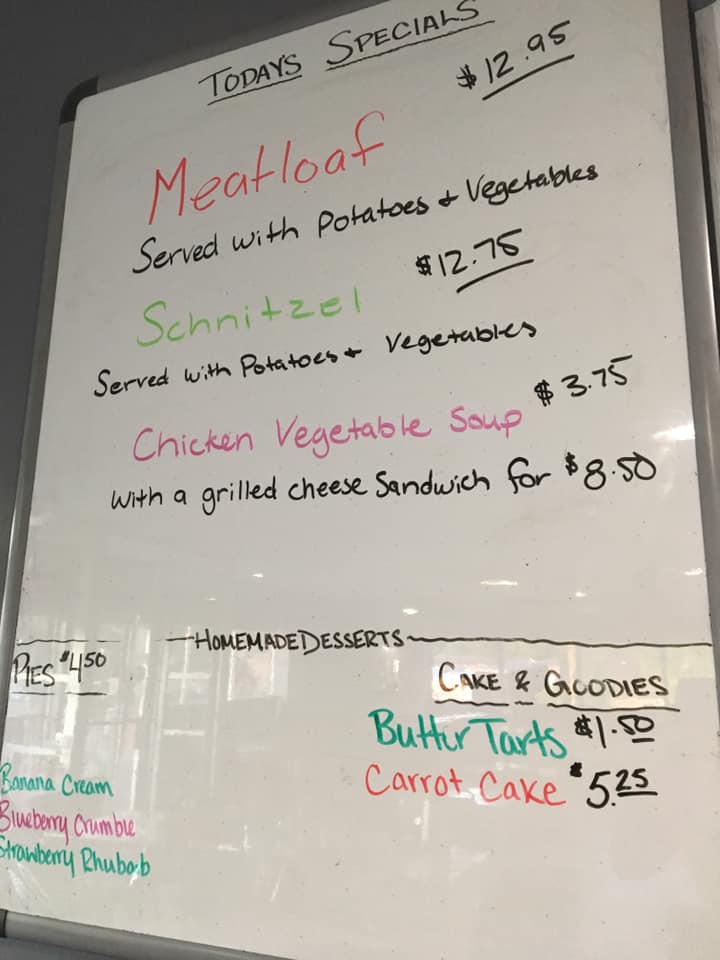 TODAYS SPECIALS
$12.95
Meatloaf
Served with Potatoes & Vegetables
$12.75
Schnitzel
Served with Potatoes & Vegetables
$3.75
Chicken Vegetable Soup
with a grilled cheese Sandwich for $8.50
HOMEMADE DESSERTS
PIES $4.50
Banana Cream
Blueberry Crumble
Strawberry Rhubab
CAKE & GOODIES
Butter Tarts $1.50
Carrot Cake $5.25